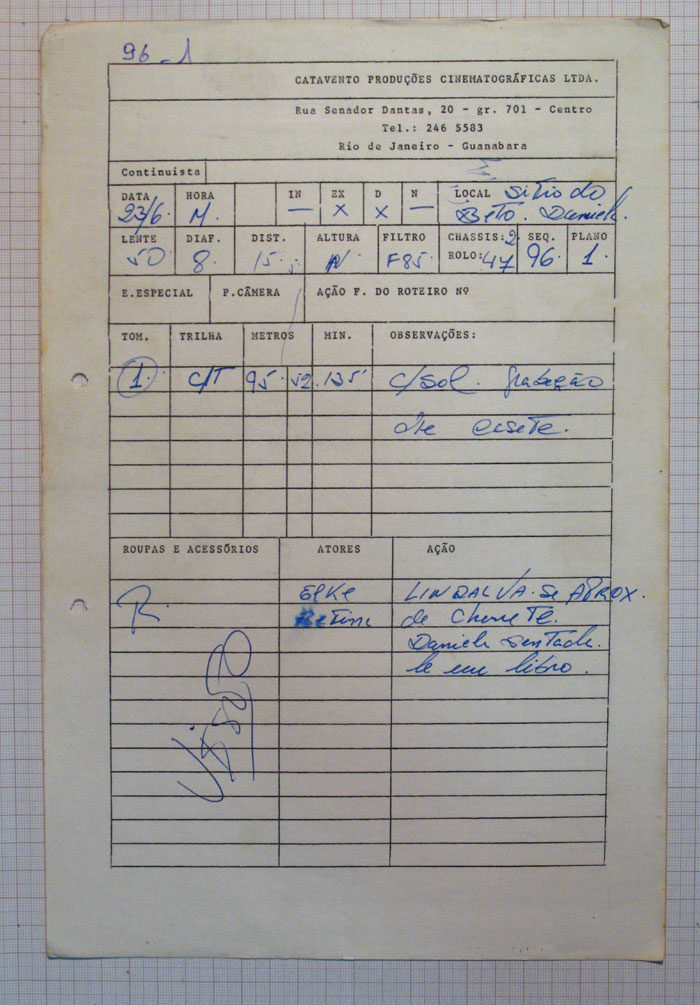 96-1
CATAVENTO PRODUÇÕES CINEMATOGRÁFICAS LTDA.
Rua Senador Dantas, 20 - gr. 701 - Centro
Tel.: 246 5583
Rio de Janeiro - Guanabara
Continuista
DATA HORA IN EX D N LOCAL Sitio do
23/6. M. — X X — Beto. Daniela.
LENTE DIAF. DIST. ALTURA FILTRO CHASSIS: 2. SEQ. PLANO
50 8 15. N F85. ROLO: 47 96. 1.
E.ESPECIAL P.CÂMERA AÇÃO F. DO ROTEIRO Nº
TOM. TRILHA METROS MIN. OBSERVAÇÕES:
1. C/T 95. 52. 135' c/sol.
de
ROUPAS E ACESSÓRIOS ATORES AÇÃO
R. Elke LINDALVA. Se APROX.
de Charrete.
Daniela sentada.
le um libro.